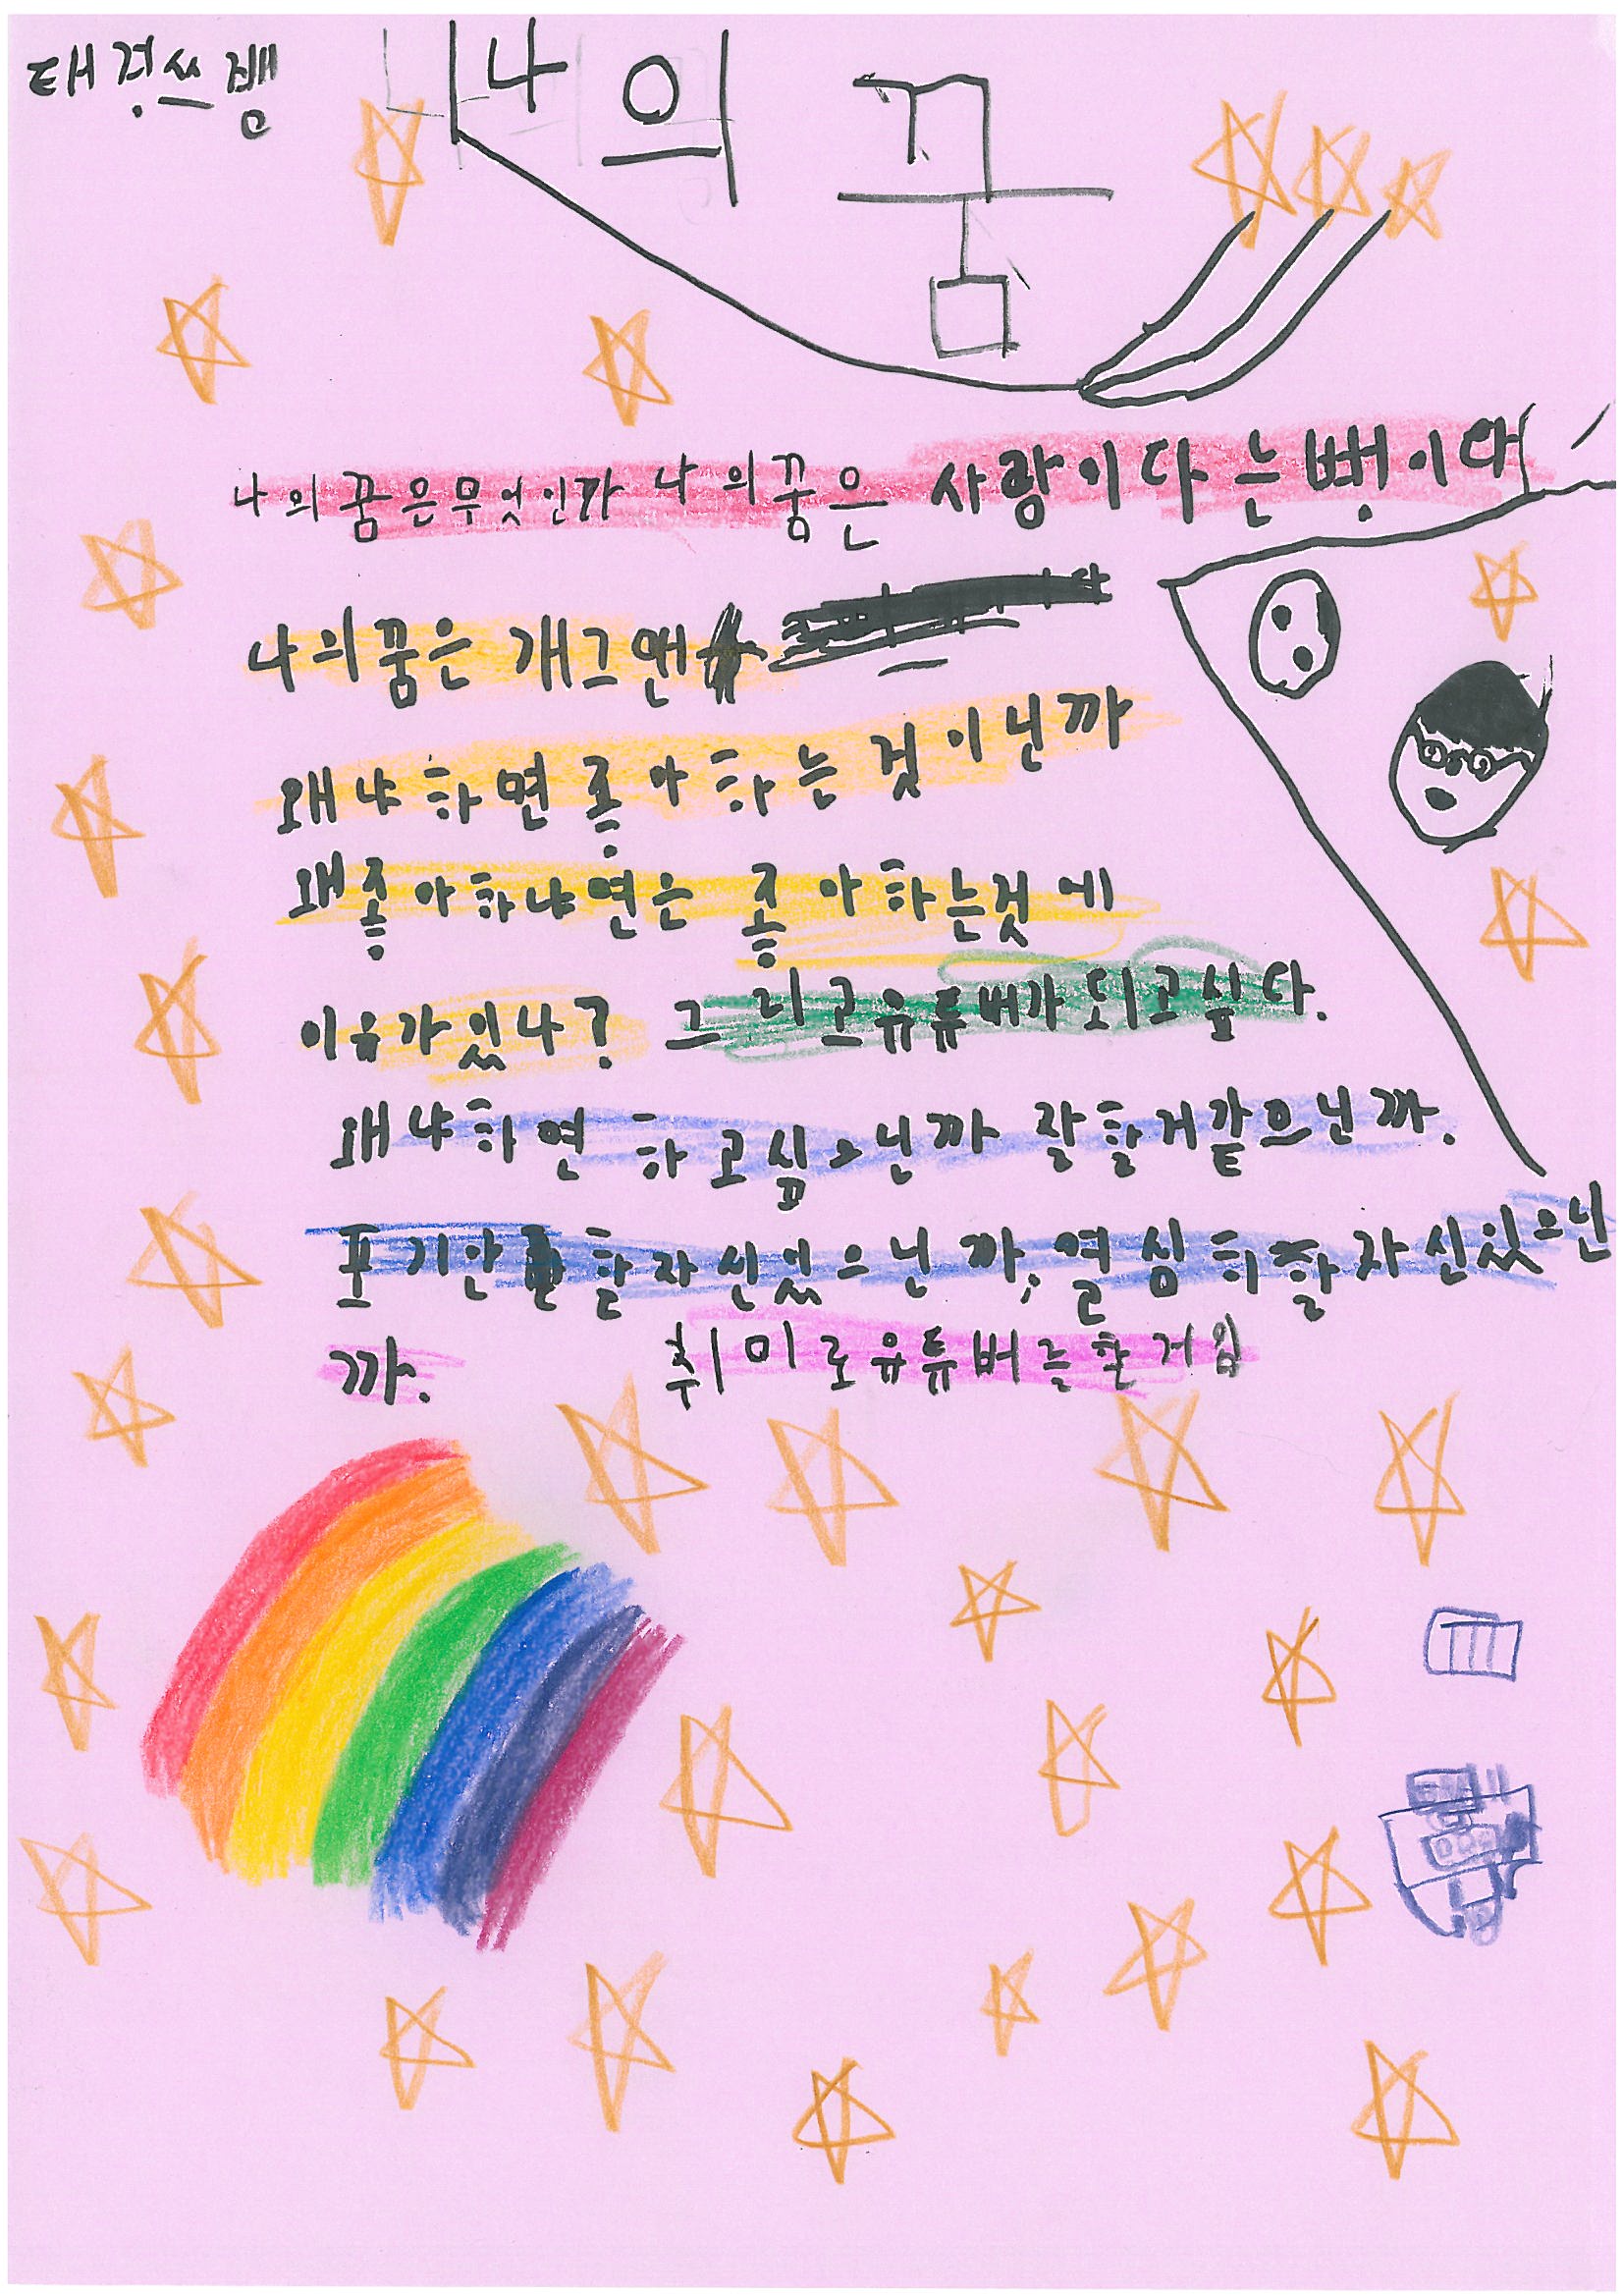 태경쓰쨈
나의 꿈
나의 꿈은무엇인가 나의꿈은 사랑이다는뻥이다
나의꿈은 개그맨
왜냐하면 좋아하는 것이닌까
왜좋아하냐면은 좋아하는것에
이유가있나? 그리고유튜버가되고싶다.
왜냐하면 하고싶으닌까 잘할거같으닌까.
포기안할자신있으닌까, 열심히할자신있으닌
까. 취미로유튜버를할거임